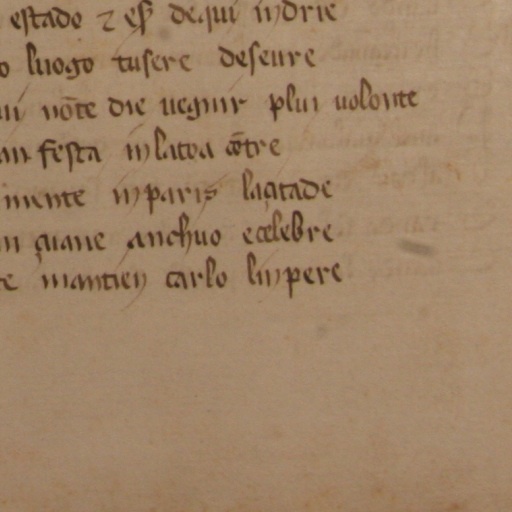 estado ⁊ eſſ dequi indrie
o luogo tusere deseure
ui nōte die uegnir plui uolonte
an festa inlatoa cōtre
mente in paris laçitade
n çuane anchuo ecelebre
te mantien carlo linpere